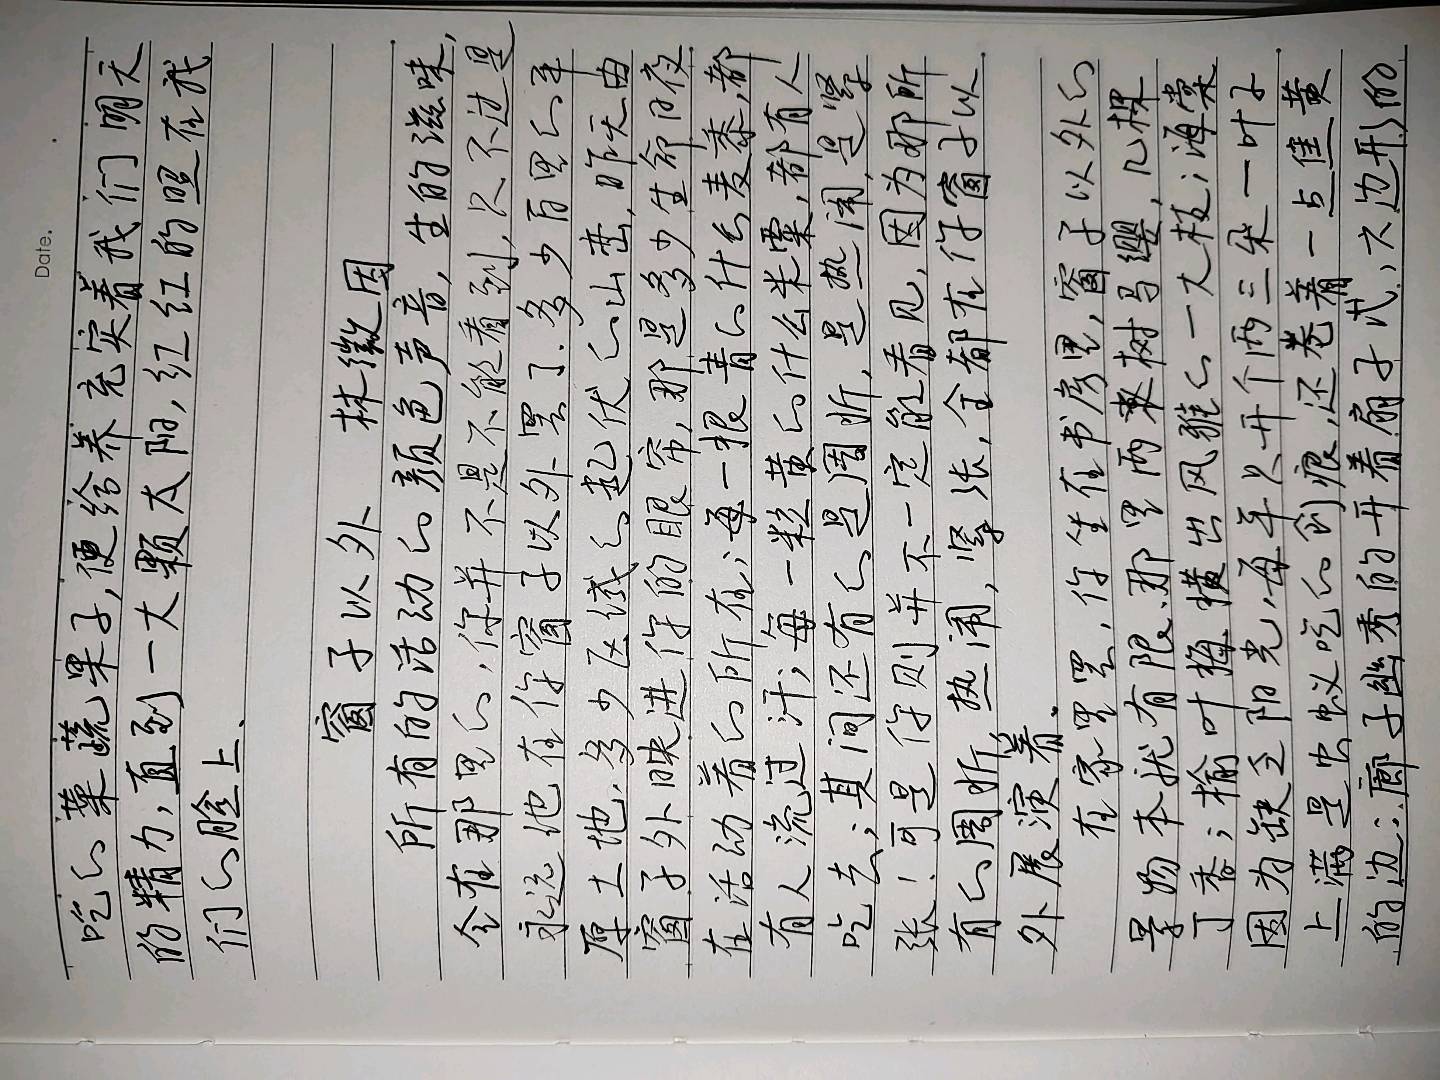 Date.
吃的菜蔬果子,便给养充实着我们明天
的精力,直到一大颗太阳,红红的照在我
们的脸上.
窗子以外 林徽因
所有的活动的颜色声音,生的滋味,
全在那里的,你并不是不能看到,只不过是
永远地在你窗子以外罢了.多少百里的平
原土地,多少区域的起伏的山峦,昨天由
窗子外映进你的眼帘,那是多少生命日夜
在活动着的所在;每一根青的什么麦黍,都
有人流过汗;每一粒黄的什么米粟,都有人
吃去;其间还有的是周折,是热闹,是紧
张!可是你则并不一定能看见,因为那所
有的周折,热闹,紧张,全都在你窗子以
外展演着.
在家里,你坐在书房里,窗子以外的
景物本就有限.那里两来树马缨,几棵
丁香;榆叶梅横出风雅的一大枝;海棠
因为缺乏阳光,每年只开个两三朵一叶子
上满是虫蚁吃的创痕,还卷着一点焦黄
的边;廊子幽秀的开着扇子式,六边形的